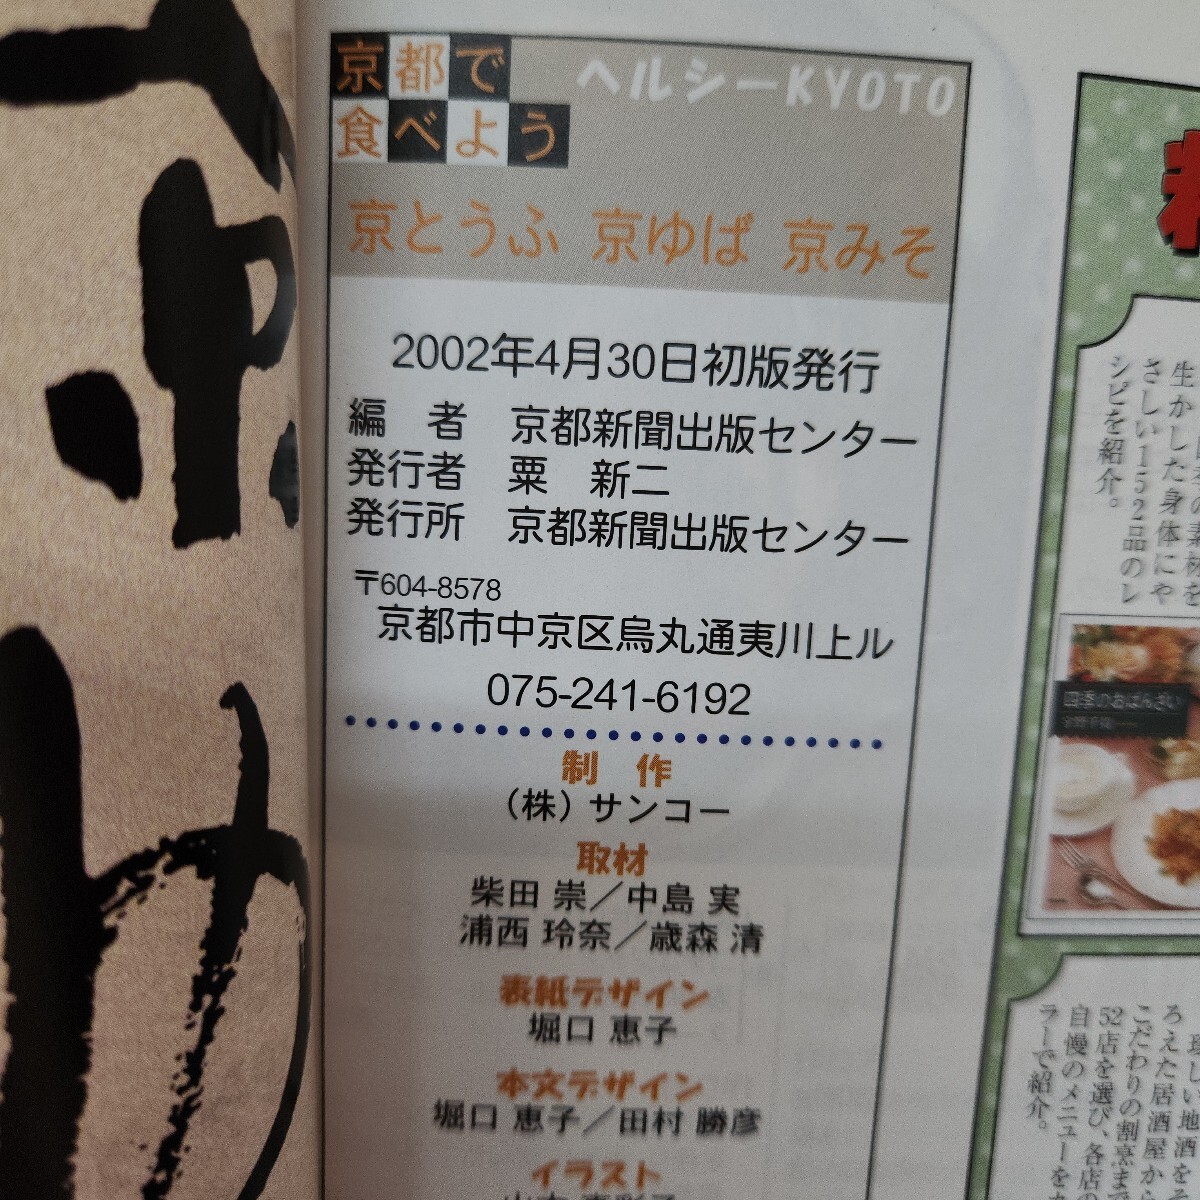 京都で
食べよう
ヘルシーKYOTO
京とうふ 京ゆば 京みそ
2002年4月30日初版発行
編　者　京都新聞出版センター
発行者　粟　新二
発行所　京都新聞出版センター
〒604-8578
京都市中京区烏丸通夷川上ル
075-241-6192
制　作
（株）サンコー
取材
柴田 崇／中島 実
浦西 玲奈／歳森 清
表紙デザイン
堀口 恵子
本文デザイン
堀口 恵子／田村 勝彦
イラスト
生かした身体にや
さしい152品のレ
シピを紹介。
四季のおばんざい
ろえた居酒屋から
こだわりの割烹ま
52店を選び、各店の
自慢のメニューをカ
ラーで紹介。